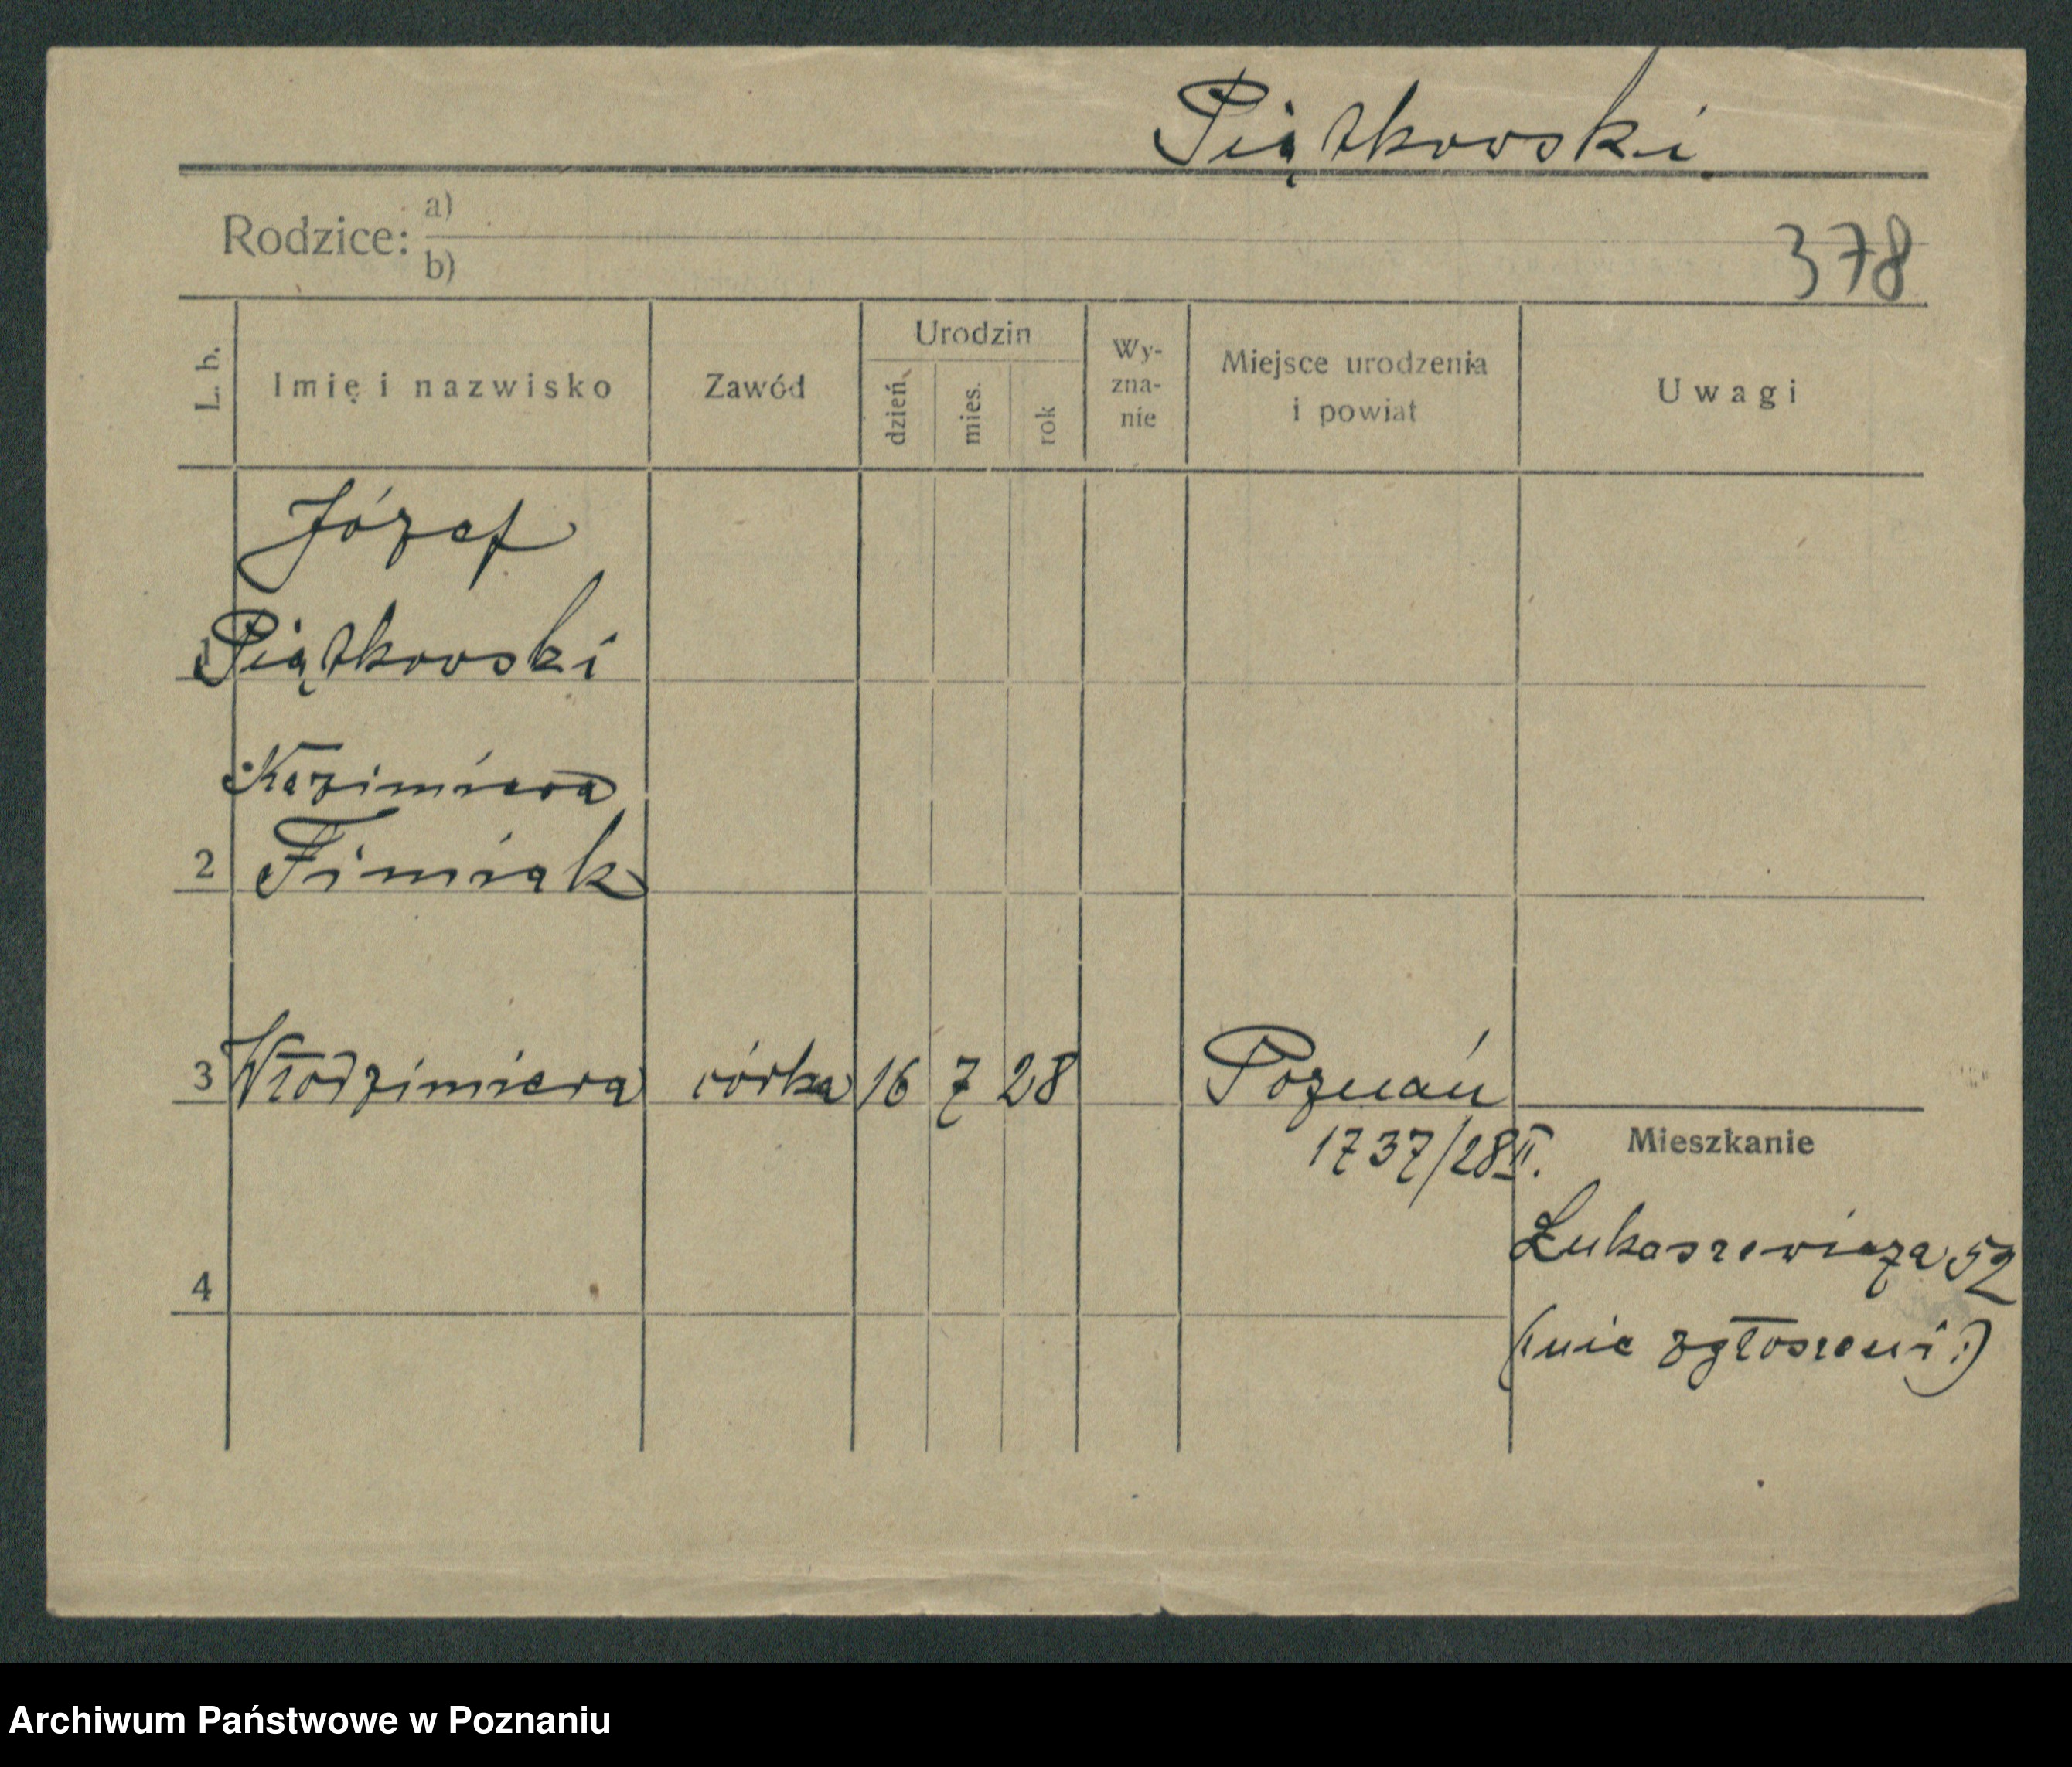 Piątkowski
Rodzice: a)
b)
378
L. b.
Imię i nazwisko
Zawód
Urodzin
dzień
mies.
rok
Wy-
zna-
nie
Miejsce urodzenia
i powiat
Uwagi
Józef
1 Piątkowski
Kazimiera
2 Fimiak
3 Włodzimiera córka 16 7 28 Poznań
1737/28 II.
Mieszkanie
Łukaszewicza 52
4
(: nie zgłoszeni :)
Archiwum Państwowe w Poznaniu